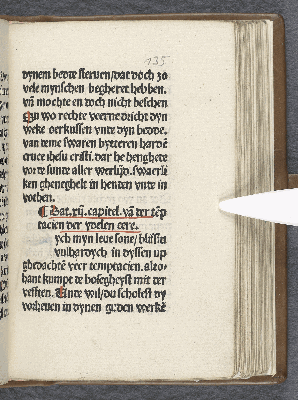 135
dynem bedde steruen/dat doch zo
vele mynschen begheret hebben.
vñ mochte en doch nicht beschen
Nu wo rechte veerne dicht dyn
weke oerkussen vnde dyn bedde.
van deme swaren bytteren harde
cruce ihesu cristi. dar he henghede
vor de sunte aller werlijd. swaerli
ken gheneghelt in henden vnde in
vothen.
Dat .xij. capittel. vā der tēp
tacien der ydelen eere.
ych myn leue sone/ blisset
vulhardych in dyssen up
ghedachte veer temptacien. alzo
hant kumpt de bosegheyst mit der
vefften. Unde wil/du scholest dy
vorheuen in dynen guden werkē